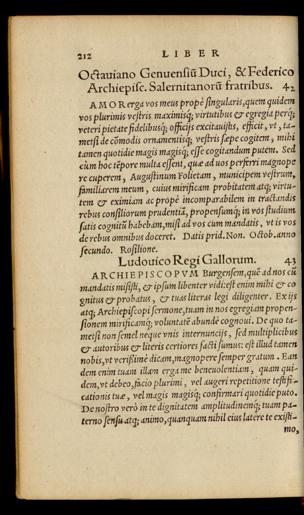 212 LIBER
Octauiano Genuensiū Duci, & Federico
Archiepisc. Salernitanorū fratribus. 42
AMOR erga vos meus propè singularis, quem quidem
vos plurimis vestris maximisq; virtutibus & egregia perq;
veteri pietate fidelibusq; officijs excitauistis, efficit, vt, ta-
metsi de cōmodis ornamentisq; vestris sæpe cogitem, mihi
tamen quotidie magis magisq; esse cogitandum putem. Sed
cùm hoc tēpore multa essent, quæ ad uos perferri magnope
re cuperem, Augustinum Folietam, municipem vestrum,
familiarem meum, cuius mirificam probitatem atq; virtu-
tem & eximiam ac propè incomparabilem in tractandis
rebus consiliorum prudentiā, propensumq; in vos studium
satis cognitū habebam, misi ad vos cum mandatis, vt is vos
de rebus omnibus doceret. Datis prid. Non. Octob. anno
secundo. Rosilione.
Ludouico Regi Gallorum. 43
ARCHIEPISCOPVM Burgensem, quē ad nos cū
mandatis misisti, & ipsum libenter vidi: est enim mihi & co
gnitus & probatus, & tuas literas legi diligenter. Ex ijs
atq; Archiepiscopi sermone, tuam in nos egregiam propen-
sionem mirificamq; voluntatē abundè cognoui. De quo ta-
metsi non semel neque vnis internuncijs, sed multiplicibus
& autoribus & literis certiores facti sumus: est illud tamen
nobis, vt verissimè dicam, magnopere semper gratum. Ean
dem enim tuam illam erga me beneuolentiam, quam qui-
dem, vt debeo, facio plurimi, vel augeri repetitione testifi-
cationis tuæ, vel magis magisq; confirmari quotidie puto.
De nostro verò in te dignitatem amplitudinemq; tuam pa-
terno sensu atq; animo, quanquam nihil eius latere te existi-
mo,